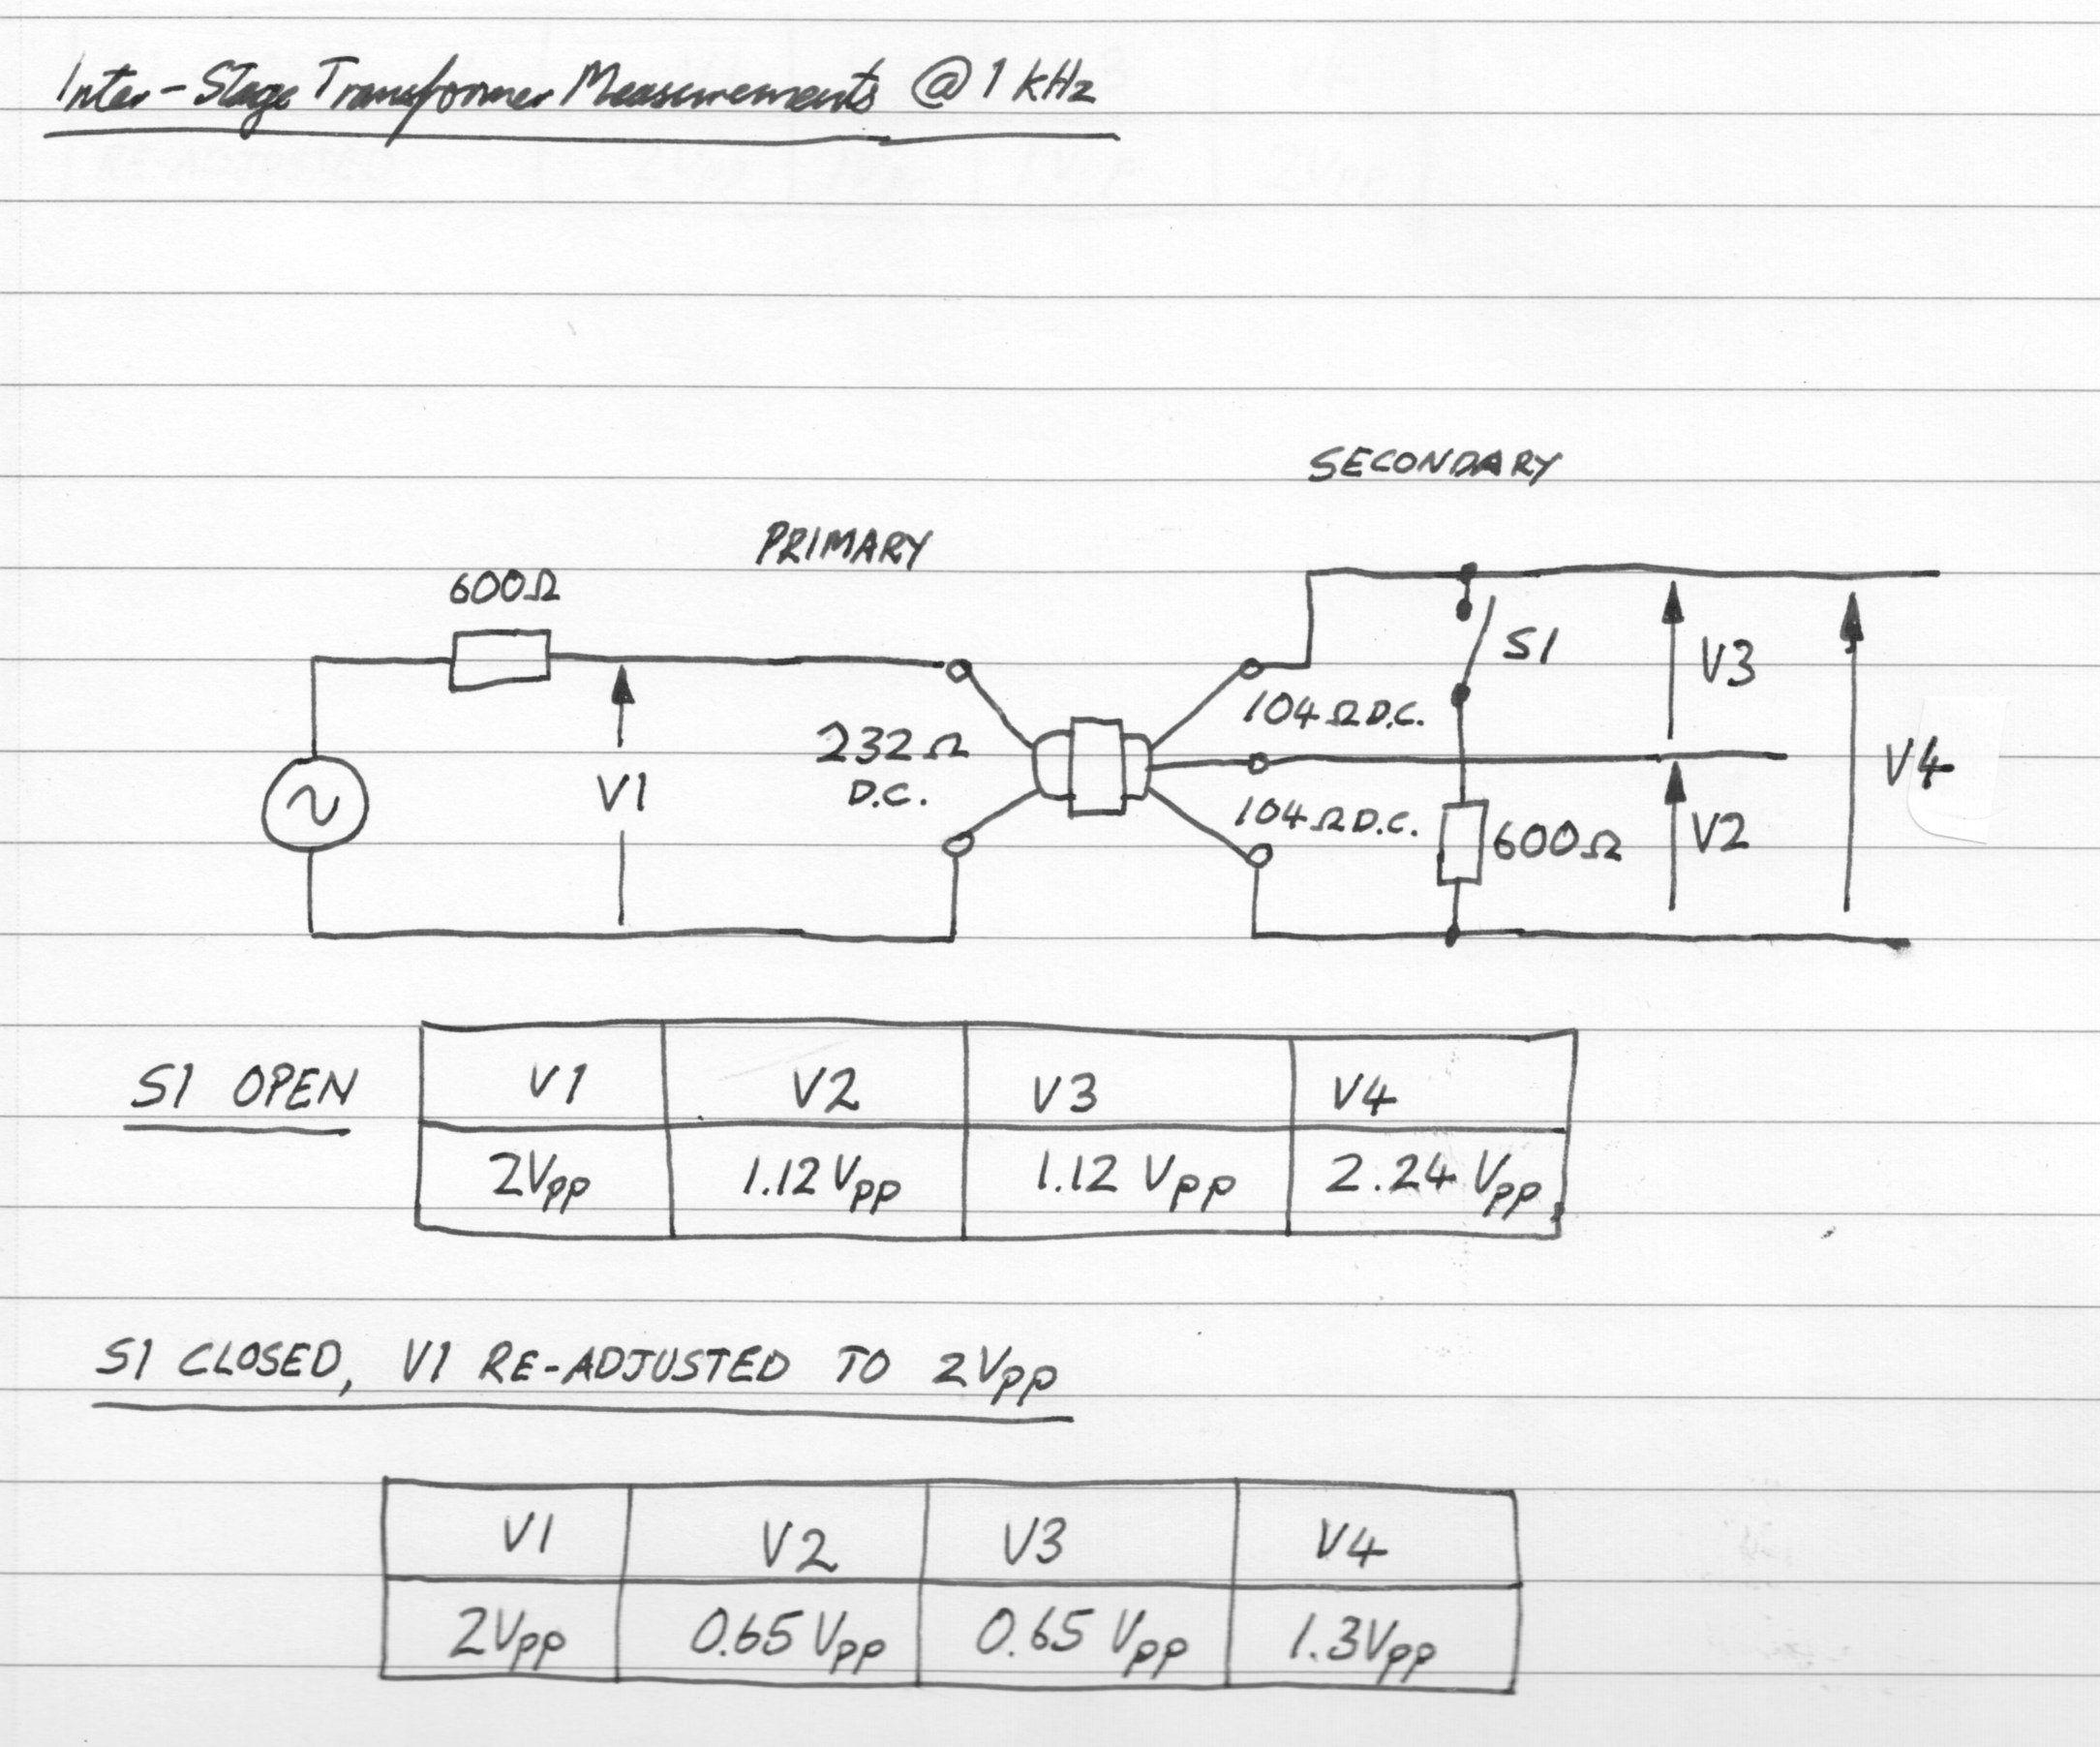 Inter-Stage Transformer Measurements @ 1 kHz
SECONDARY
PRIMARY
600Ω
S1
V3
104Ω D.C.
232Ω
D.C.
V1
V4
104Ω D.C.
600Ω
V2
S1 OPEN
V1 V2 V3 V4
2Vpp 1.12Vpp 1.12 Vpp 2.24 Vpp
S1 CLOSED, V1 RE-ADJUSTED TO 2Vpp
V1 V2 V3 V4
2Vpp 0.65Vpp 0.65 Vpp 1.3Vpp